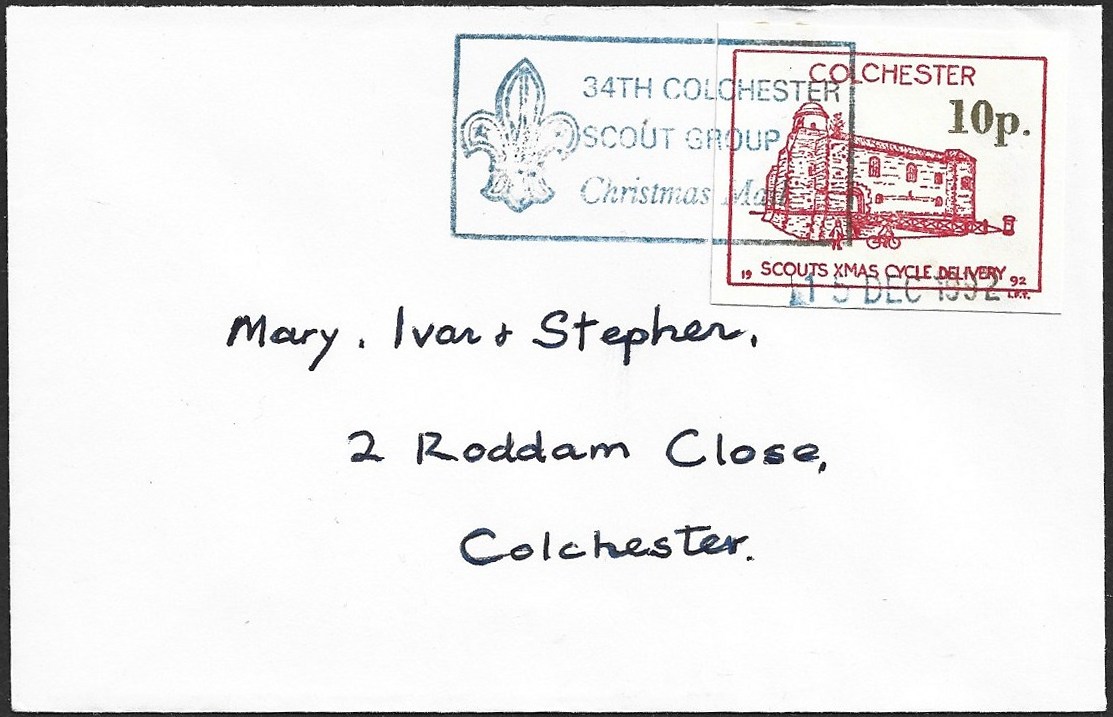 34TH COLCHESTER
SCOUT GROUP
Christmas Mail
COLCHESTER
10p.
19 SCOUTS XMAS CYCLE DELIVERY 92
I.F.T.
15 DEC 1992
Mary, Ivar & Stephen,
2 Roddam Close,
Colchester.